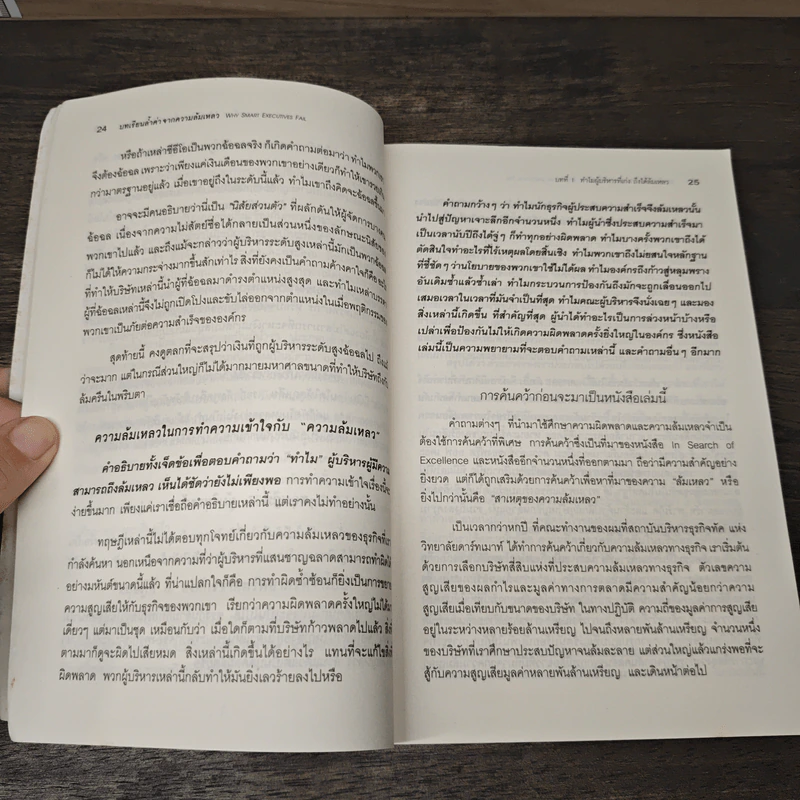 24 บทเรียนล้ำค่า จากความล้มเหลว WHY SMART EXECUTIVES FAIL
หรือถ้าเหล่าซีอีโอเป็นพวกฉ้อฉลจริง ก็เกิดคำถามต่อมาว่า ทำไมพวก
จึงต้องฉ้อฉล เพราะว่าเพียงแค่เงินเดือนของพวกเขาอย่างเดียวก็ทำให้เขารวย
กว่ามาตรฐานอยู่แล้ว เมื่อเขาอยู่ถึงในระดับนี้แล้ว ทำไมเขาถึงคิดจะฉ้อฉลขึ้น
อาจจะมีคนอธิบายว่านี่เป็น "นิสัยส่วนตัว" ที่ผลักดันให้ผู้จัดการบาง
ฉ้อฉล เนื่องจากความไม่สัตย์ซื่อได้กลายเป็นส่วนหนึ่งของลักษณะนิสัยของ
พวกเขาไปแล้ว และถึงแม้จะกล่าวว่าผู้บริหารระดับสูงเหล่านี้มักเป็นพวกฉ้อฉล
ก็ไม่ได้ให้ความกระจ่างมากขึ้นสักเท่าไร สิ่งที่ยังคงเป็นคำถามค้างคาใจก็คือ
ที่ทำให้บริษัทเหล่านี้นำผู้ที่ฉ้อฉลมาดำรงตำแหน่งสูงสุด และทำไมเหล่า
ผู้ที่ฉ้อฉลเหล่านี้จึงไม่ถูกเปิดโปงและขับไล่ออกจากตำแหน่งในเมื่อพฤติกรรมของ
พวกเขาเป็นภัยต่อความสำเร็จขององค์กร
สุดท้ายนี้ คงดูตลกที่จะสรุปว่าเงินที่ถูกผู้บริหารระดับสูงฉ้อฉลไป ถึงแม้
ว่าจะมาก แต่ในกรณีส่วนใหญ่ก็ไม่ได้มากมายมหาศาลขนาดที่ทำให้บริษัทถึงกับ
ล้มครืนในพริบตา
ความล้มเหลวในการทำความเข้าใจกับ "ความล้มเหลว"
คำอธิบายทั้งเจ็ดข้อเพื่อตอบคำถามว่า "ทำไม" ผู้บริหารผู้มีความ
สามารถถึงล้มเหลว เห็นได้ชัดว่ายังไม่เพียงพอ การทำความเข้าใจเรื่องนี้
ง่ายขึ้นมาก เพียงแค่เราเชื่อถือคำอธิบายเหล่านี้ แต่เราคงไม่ทำอย่างนั้น
ทฤษฎีเหล่านี้ไม่ได้ตอบทุกโจทย์เกี่ยวกับความล้มเหลวของธุรกิจที่เรา
กำลังค้นหา นอกเหนือจากความที่ว่าผู้บริหารที่แสนชาญฉลาดสามารถทำผิดได้
อย่างมหันต์ขนาดนี้แล้ว ที่น่าแปลกใจก็คือ การทำผิดซ้ำซ้อนก็ยิ่งเป็นการขยาย
ความสูญเสียให้กับธุรกิจของพวกเขา เรียกว่าความผิดพลาดครั้งใหญ่ไม่ได้มา
เดี่ยวๆ แต่มาเป็นชุด เหมือนกับว่า เมื่อใดก็ตามที่บริษัทก้าวพลาดไปแล้ว สิ่งที่
ตามมาก็ดูจะผิดไปเสียหมด สิ่งเหล่านี้เกิดขึ้นได้อย่างไร แทนที่จะแก้ไขสิ่งที่
ผิดพลาด พวกผู้บริหารเหล่านี้กลับทำให้มันยิ่งเลวร้ายลงไปหรือ
บทที่ 1 ทำไมผู้บริหารที่เก่ง ถึงได้ล้มเหลว 25
คำถามกว้างๆ ว่า ทำไมนักธุรกิจผู้ประสบความสำเร็จจึงล้มเหลวนั้น
นำไปสู่ปัญหาเจาะลึกอีกจำนวนหนึ่ง ทำไมผู้นำซึ่งประสบความสำเร็จมา
เป็นเวลานับปีถึงได้จู่ๆ ก็ทำทุกอย่างผิดพลาด ทำไมบางครั้งพวกเขาถึงได้
ตัดสินใจทำอะไรที่ไร้เหตุผลโดยสิ้นเชิง ทำไมพวกเขาถึงไม่ยอมสนใจหลักฐาน
ที่ชี้ชัดๆ ว่านโยบายของพวกเขาใช้ไม่ได้ผล ทำไมองค์กรถึงก้าวสู่หลุมพราง
อันเดิมซ้ำแล้วซ้ำเล่า ทำไมกระบวนการป้องกันถึงมักจะถูกเลื่อนออกไป
เสมอเวลาในเวลาที่มันจำเป็นที่สุด ทำไมคณะผู้บริหารจึงนั่งเฉยๆ และมอง
สิ่งเหล่านี้เกิดขึ้น ที่สำคัญที่สุด ผู้นำได้ทำอะไรเป็นการล่วงหน้าบ้างหรือ
เปล่าเพื่อป้องกันไม่ให้เกิดความผิดพลาดครั้งยิ่งใหญ่ในองค์กร ซึ่งหนังสือ
เล่มนี้เป็นความพยายามที่จะตอบคำถามเหล่านี้ และคำถามอื่นๆ อีกมาก
การค้นคว้าก่อนจะมาเป็นหนังสือเล่มนี้
คำถามต่างๆ ที่นำมาใช้ศึกษาความผิดพลาดและความล้มเหลวจำเป็น
ต้องใช้การค้นคว้าที่พิเศษ การค้นคว้าซึ่งเป็นที่มาของหนังสือ In Search of
Excellence และหนังสืออีกจำนวนหนึ่งที่ออกตามมา ถือว่ามีความสำคัญอย่าง
ยิ่งยวด แต่ก็ได้ถูกเสริมด้วยการค้นคว้าเพื่อหาที่มาของความ "ล้มเหลว" หรือ
ยิ่งไปกว่านั้นคือ "สาเหตุของความล้มเหลว"
เป็นเวลากว่าหกปี ที่คณะทำงานของผมที่สถาบันบริหารธุรกิจทัค แห่ง
วิทยาลัยดาร์ทเมาท์ ได้ทำการค้นคว้าเกี่ยวกับความล้มเหลวทางธุรกิจ เราเริ่มต้น
ด้วยการเลือกบริษัทสี่สิบแห่งที่ประสบความล้มเหลวทางธุรกิจ ตัวเลขความ
สูญเสียของผลกำไรและมูลค่าทางการตลาดมีความสำคัญน้อยกว่าความ
สูญเสียเมื่อเทียบกับขนาดของบริษัท ในทางปฏิบัติ ความถี่ของมูลค่าการสูญเสีย
อยู่ในระหว่างหลายร้อยล้านเหรียญ ไปจนถึงหลายพันล้านเหรียญ จำนวนหนึ่ง
ของบริษัทที่เราศึกษาประสบปัญหาจนล้มละลาย แต่ส่วนใหญ่แล้วแกร่งพอที่จะ
สู้กับความสูญเสียมูลค่าหลายพันล้านเหรียญ และเดินหน้าต่อไป